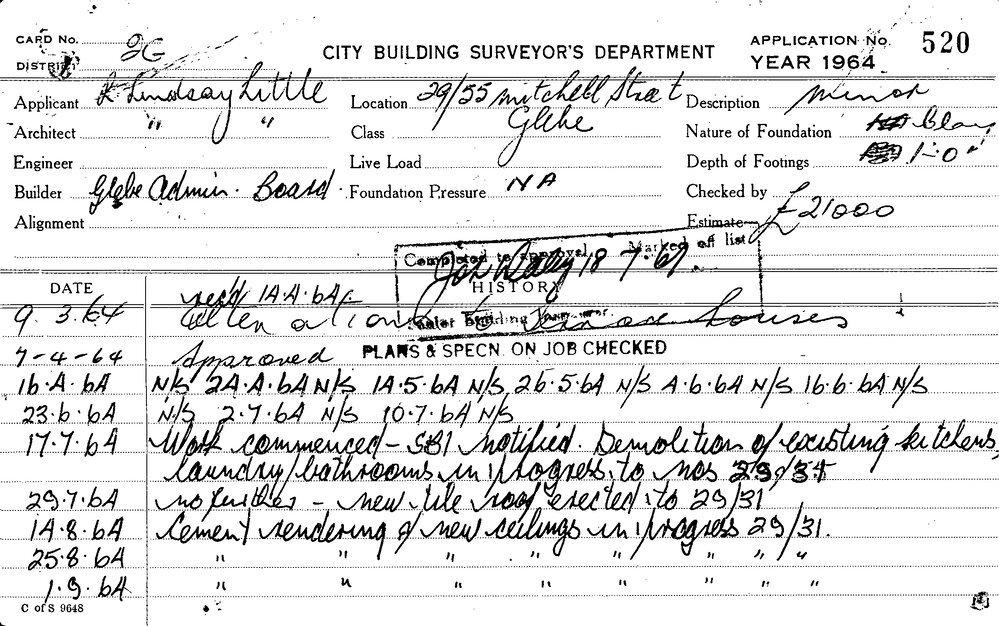 CARD No. 2G
CITY BUILDING SURVEYOR'S DEPARTMENT
APPLICATION No. 520
DISTRICT
YEAR 1964
Applicant R Lindsay Little
Location 29/55 Mitchell Street
Glebe
Description Minor
Architect " "
Class
Nature of Foundation Clay
Engineer
Live Load
Depth of Footings 1-0"
Builder Glebe Admin. Board
Foundation Pressure NA
Checked by
Alignment
Estimate £21000
Completed to approval Marked off list
18.7.67
DATE
HISTORY
rec'd 14.4.64
9.3.64 Alterations to terrace houses
Senior Building Surveyor.
7-4-64 Approved PLANS & SPECN. ON JOB CHECKED
16.4.64 N/S 24.4.64 N/S 14.5.64 N/S, 26.5.64 N/S 4.6.64 N/S 16.6.64 N/S
23.6.64 N/S 2.7.64 N/S 10.7.64 N/S
17.7.64 Work commenced - SBI notified. Demolition of existing kitchens,
laundry/bathrooms in progress to nos 29/31
29.7.64 no further - new tile roof erected to 29/31
14.8.64 Cement rendering & new ceilings in progress 29/31.
25.8.64 " " " " " " " "
1.9.64 " " " " " " " "
C of S 9648